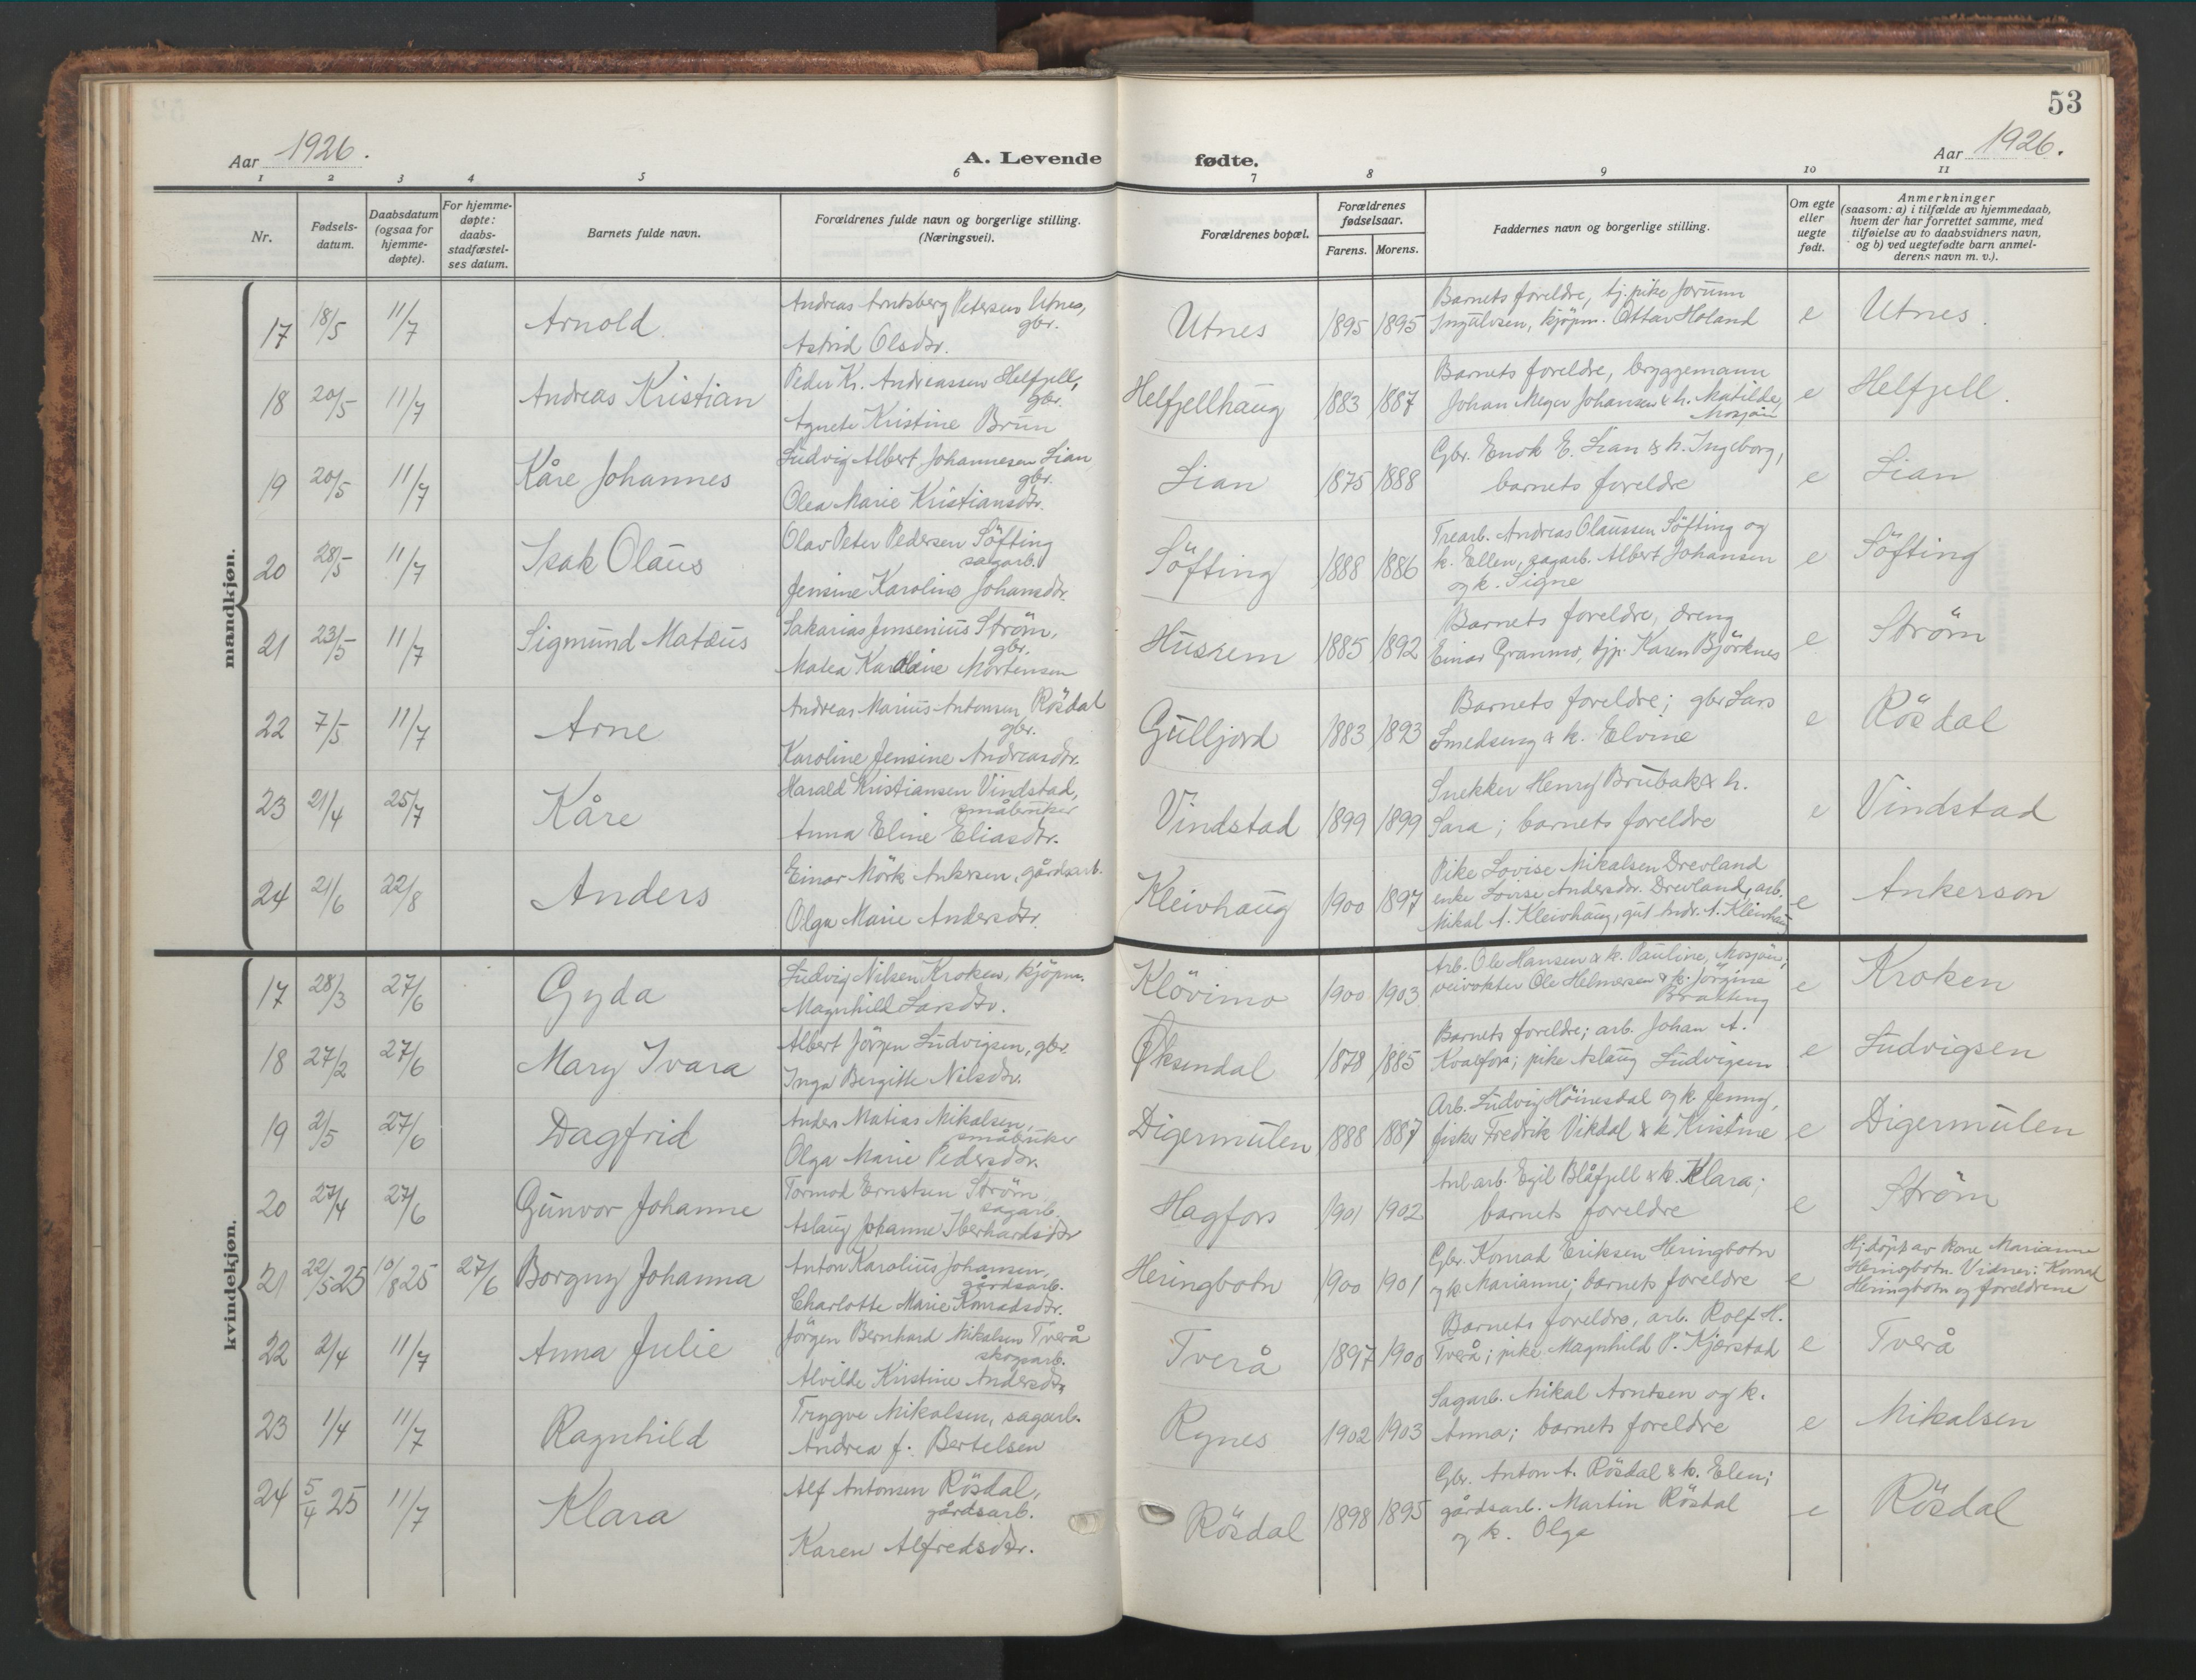 53
Aar 1926.
A. Levende fødte.
Aar 1926.
1 2 3 4 5 6 7 8 9 10 11
Nr.
Fødsels-
datum.
Daabsdatum
(ogsaa for
hjemme-
døpte).
For hjemme-
døpte:
daabs-
stadfæstel-
ses datum.
Barnets fulde navn.
Forældrenes fulde navn og borgerlige stilling.
(Næringsvei).
Forældrenes bopæl.
Forældrenes
fødselsaar.
Farens. Morens.
Faddernes navn og borgerlige stilling.
Om egte
eller
uegte
født.
Anmerkninger
(saasom: a) i tilfælde av hjemmedaab,
hvem der har forrettet samme, med
tilføielse av to daabsvidners navn,
og b) ved uegtefødte barn anmel-
derens navn m. v.).
mandkjøn.
17 18/5 11/7 Arnold
Andreas Arntsberg Petersen Utnes,
gbr.
Astrid Olsdtr.
Utnes 1895 1895
Barnets foreldre, tj. pike Jorunn
Ingulvsen, kjøpm. Ottar Holand
e Utnes.
18 20/5 11/7 Andreas Kristian
Peder Kr. Andreassen Helfjell,
gbr.
Agnete Kristine Brun
Helfjellhaug 1883 1887
Barnets foreldre, bryggemann
Johan Meyer Johansen & h. Matilde,
Mosjøen
e Helfjell.
19 20/5 11/7 Kåre Johannes
Ludvig Albert Johannesen Lian
gbr.
Olea Marie Kristiansdtr.
Lian 1875 1888
Gbr. Enok E. Lian & h. Ingeborg,
barnets foreldre
e Lian
20 28/5 11/7 Isak Olaus
Olav Peter Pedersen Söfting
sagarb.
Jensine Karoline Johansdtr.
Söfting 1888 1886
Trearb. Andreas Olaussen Söfting og
k. Ellen, sagarb. Albert Johansen
og k. Signe
e Söfting
21 23/5 11/7 Sigmund Matæus
Sakarias Jensenius Ström,
gbr.
Matea Karoline Mortensen
Husrem 1885 1892
Barnets foreldre, dreng
Einar Granmo, tjp. Karen Björknes
e Ström
22 7/5 11/7 Arne
Andreas Marius Antonsen Rösdal
gbr.
Karoline Jensine Andreasdtr.
Gulljord 1883 1893
Barnets foreldre; gbr Lars
Smedseng & k. Elvine
e Rösdal
23 21/4 25/7 Kåre
Harald Kristiansen Vindstad,
småbruker
Anna Eline Eliasdtr.
Vindstad 1899 1899
Snekker Henry Brubak & h.
Sara; barnets foreldre
e Vindstad
24 21/6 22/8 Anders
Einar Mörk Ankersen, gårdsarb.
Olga Marie Andersdtr.
Kleivhaug 1900 1897
Pike Lovise Mikalsen Drevland
enke Lovise Andersdtr. Drevland, arb.
Mikal A. Kleivhaug, gut Andr. A. Kleivhaug
e Ankerson
kvindekjøn.
17 28/3 27/6 Gyda
Ludvig Nilsen Kroken, kjöpm.
Magnhild Larsdtr.
Klövimo 1900 1903
Arb. Ole Hansen & k. Pauline, Mosjøen;
veivokter Ole Helmersen & k. Jörgine
e Kroken
18 27/2 27/6 Mary Ivara
Albert Jörgen Ludvigsen, gbr.
Inga Bergitte Nilsdtr.
Øksendal 1878 1885
Barnets foreldre; arb. Johan A.
Kvalfors; pike Aslaug Ludvigsen
e Ludvigsen
19 2/5 27/6 Dagfrid
Anders Matias Mikalsen,
småbruker
Olga Marie Pedersdtr.
Digermulen 1888 1887
Arb. Ludvig Höinesdal og k. Jenny,
fisker Fredrik Vikdal & k Kristine
e Digermulen
20 27/4 27/6 Gunvor Johanne
Tormod Ernstsen Ström,
sagarb.
Aslaug Johanne Iberhardsdtr
Hagfors 1901 1902
Anl.arb. Egil Blåfjell & k. Klara;
barnets foreldre
e Ström
21 22/5 25 10/8 25 27/6 Borguy Johanna
Anton Karolius Johansen,
gårdsarb.
Charlotte Marie Konradsdtr.
Heringbotn 1900 1901
Gbr. Konrad Eriksen Heringbotn
og k Marianne; barnets foreldre
e
Hj. döpt av kone Marianne
Heringbotn. Vidner: Konrad
Heringbotn og foreldrene
22 2/4 11/7 Anna Julie
Jörgen Bernhard Mikalsen Tverå
skogsarb.
Alvilde Kristine Andersdtr
Tverå 1897 1900
Barnets foreldre, arb. Rolf H.
Tverå; pike Magnhild P. Kjærstad
e Tverå
23 1/4 11/7 Ragnhild
Trygve Mikalsen, sagarb.
Andrea f. Bertelsen
Rynes 1902 1903
Sagarb. Mikal Arntsen og k.
Anna; barnets foreldre
e Mikalsen
24 5/4 25 11/7 Klara
Alf Antonsen Rösdal,
gårdsarb.
Karen Alfredsdtr.
Rösdal 1898 1895
Gbr. Anton A. Rösdal & k. Elen;
gårdsarb. Martin Rösdal
og k. Olga
e Rösdal